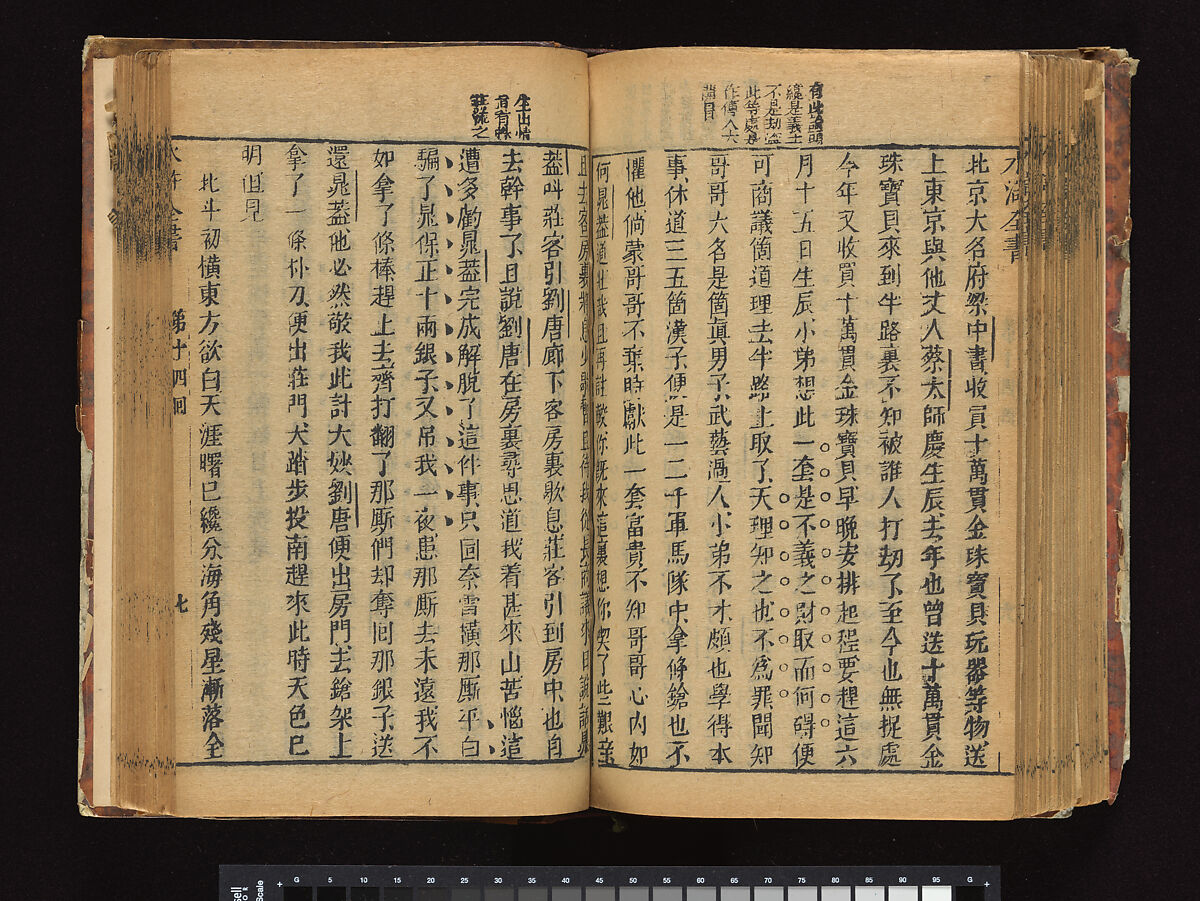 水滸全書
有此論頭
纔是義士
不是劫盜
此等處是
作傳人大
關目
北京大名府梁中書收買十萬貫金珠寶貝玩器等物送
上東京與他丈人蔡太師慶生辰去年也曾送十萬貫金
珠寶貝來到半路裏不知被誰人打劫了至今也無捉處
今年又收買十萬貫金珠寶貝早晚安排起程要趕這六
月十五日生辰小弟想此一套是不義之財取而何碍便
可商議箇道理去半路上取了天理知之也不爲罪聞知
哥哥大名是箇眞男子武藝過人小弟不才頗也學得本
事休道三五箇漢子便是一二千軍馬隊中拿條鎗也不
懼他倘蒙哥哥不棄時獻此一套富貴不知哥哥心內如
何晁蓋道壯哉且再計較你既來這裏想你喫了些艱辛
且去客房裏將息少歇暫且待我從長商議來日說話晁
蓋叫莊客引劉唐廊下客房裏歇息莊客引到房中也自
去幹事了且說劉唐在房裏尋思道我着甚來由苦惱這
遭多虧晁蓋完成解脫了這件事只叵奈雷橫那厮平白
騙了晁保正十兩銀子又吊我一夜想那厮去未遠我不
如拿了條棒趕上去齊打翻了那厮們却奪回那銀子送
還晁蓋他必然敬我此計大妙劉唐便出房門去鎗架上
拿了一條朴刀便出莊門大踏步投南趕來此時天色已
明但見
北斗初橫東方欲白天涯曙色纔分海角殘星漸落金
水滸全書
第十四回
七